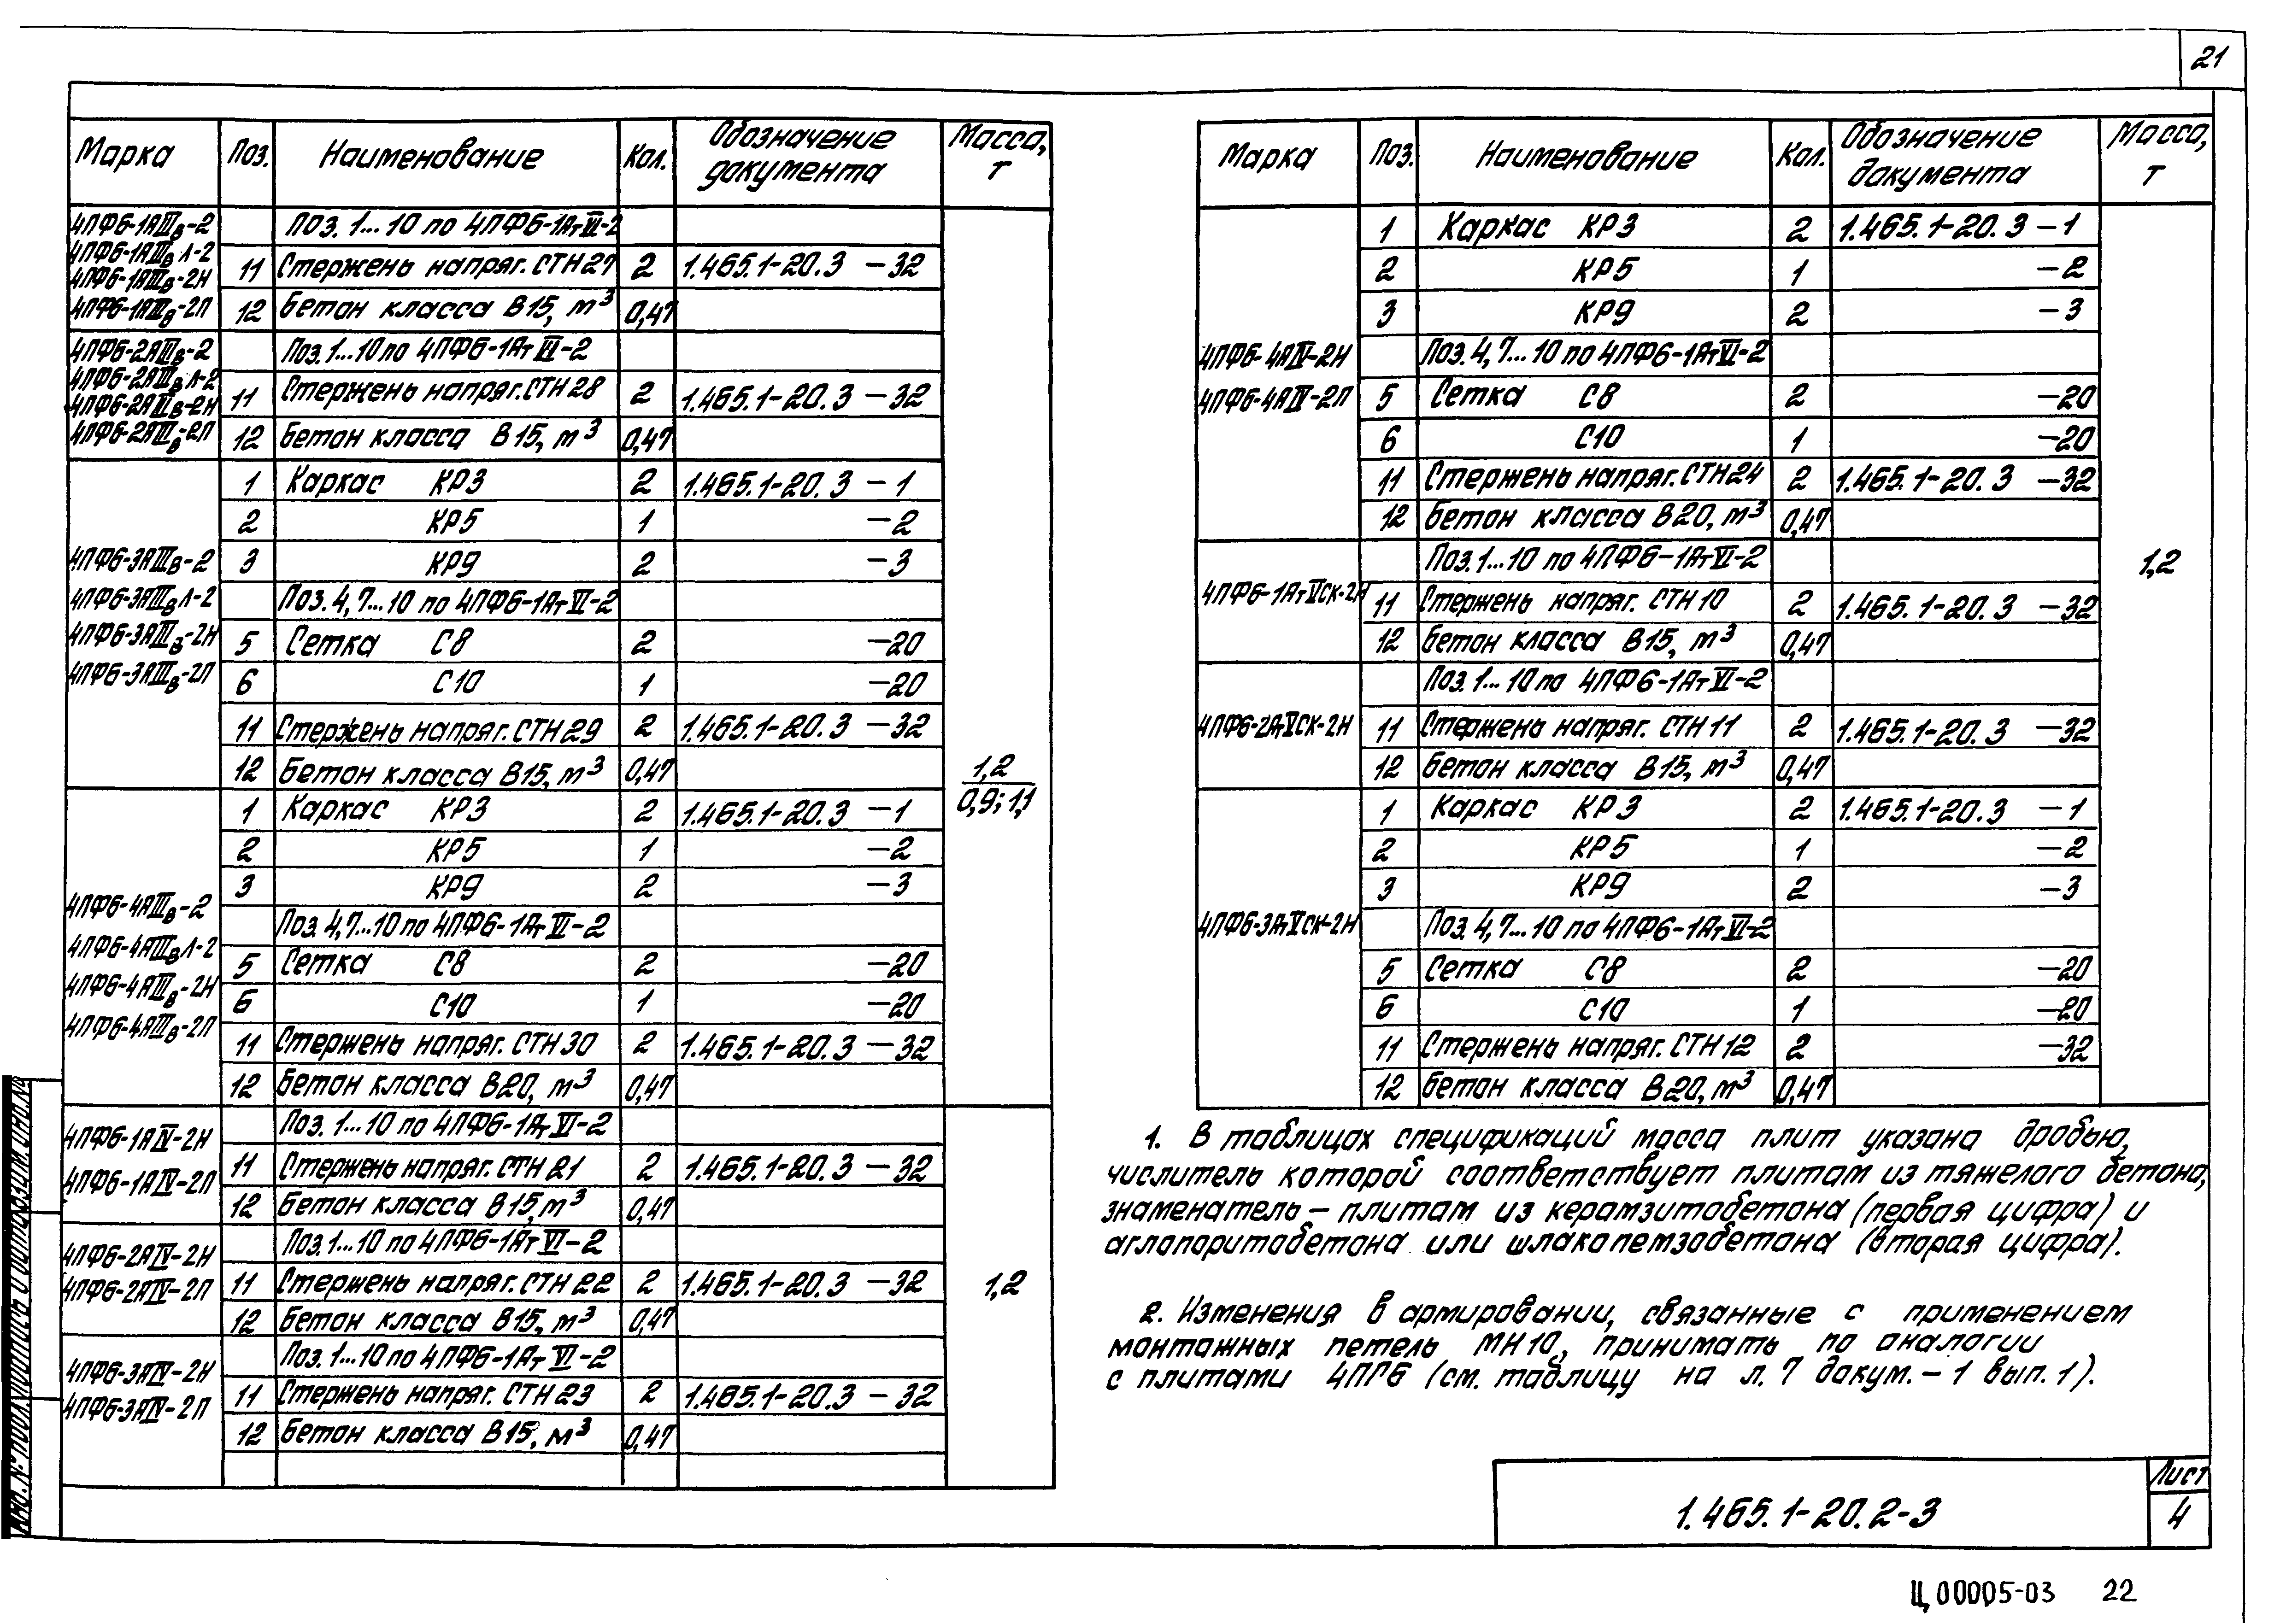 21
Марка Поз. Наименование Кол. Обозначение документа Масса, т
4ПФ6-1АIIIв-2
4ПФ6-1АIIIвЛ-2
4ПФ6-1АIIIв-2Н
4ПФ6-1АIIIв-2П
Поз. 1...10 по 4ПФ6-1АтVI-2
11 Стержень напряг. СТН27 2 1.465.1-20.3 -32
12 Бетон класса В15, м³ 0,47
4ПФ6-2АIIIв-2
4ПФ6-2АIIIвЛ-2
4ПФ6-2АIIIв-2Н
4ПФ6-2АIIIв-2П
Поз. 1...10 по 4ПФ6-1АтVI-2
11 Стержень напряг. СТН28 2 1.465.1-20.3 -32
12 Бетон класса В15, м³ 0,47
4ПФ6-3АIIIв-2
4ПФ6-3АIIIвЛ-2
4ПФ6-3АIIIв-2Н
4ПФ6-3АIIIв-2П
1 Каркас КР3 2 1.465.1-20.3 -1
2 КР5 1 -2
3 КР9 2 -3
Поз. 4,7...10 по 4ПФ6-1АтVI-2
5 Сетка С8 2 -20
6 С10 1 -20
11 Стержень напряг. СТН29 2 1.465.1-20.3 -32
12 Бетон класса В15, м³ 0,47
1,2
0,9; 1,1
4ПФ6-4АIIIв-2
4ПФ6-4АIIIвЛ-2
4ПФ6-4АIIIв-2Н
4ПФ6-4АIIIв-2П
1 Каркас КР3 2 1.465.1-20.3 -1
2 КР5 1 -2
3 КР9 2 -3
Поз. 4,7...10 по 4ПФ6-1АтVI-2
5 Сетка С8 2 -20
6 С10 1 -20
11 Стержень напряг. СТН30 2 1.465.1-20.3 -32
12 Бетон класса В20, м³ 0,47
4ПФ6-1АIV-2Н
4ПФ6-1АIV-2П
Поз. 1...10 по 4ПФ6-1АтVI-2
11 Стержень напряг. СТН21 2 1.465.1-20.3 -32
12 Бетон класса В15, м³ 0,47
4ПФ6-2АIV-2Н
4ПФ6-2АIV-2П
Поз. 1...10 по 4ПФ6-1АтVI-2
11 Стержень напряг. СТН22 2 1.465.1-20.3 -32
12 Бетон класса В15, м³ 0,47
1,2
4ПФ6-3АIV-2Н
4ПФ6-3АIV-2П
Поз. 1...10 по 4ПФ6-1АтVI-2
11 Стержень напряг. СТН23 2 1.465.1-20.3 -32
12 Бетон класса В15, м³ 0,47
Марка Поз. Наименование Кол. Обозначение документа Масса, т
4ПФ6-4АIV-2Н
4ПФ6-4АIV-2П
1 Каркас КР3 2 1.465.1-20.3 -1
2 КР5 1 -2
3 КР9 2 -3
Поз. 4,7...10 по 4ПФ6-1АтVI-2
5 Сетка С8 2 -20
6 С10 1 -20
11 Стержень напряг. СТН24 2 1.465.1-20.3 -32
12 Бетон класса В20, м³ 0,47
1,2
4ПФ6-1АтVСК-2Н
Поз. 1...10 по 4ПФ6-1АтVI-2
11 Стержень напряг. СТН10 2 1.465.1-20.3 -32
12 Бетон класса В15, м³ 0,47
4ПФ6-2АтVСК-2Н
Поз. 1...10 по 4ПФ6-1АтVI-2
11 Стержень напряг. СТН11 2 1.465.1-20.3 -32
12 Бетон класса В15, м³ 0,47
4ПФ6-3АтVСК-2Н
1 Каркас КР3 2 1.465.1-20.3 -1
2 КР5 1 -2
3 КР9 2 -3
Поз. 4,7...10 по 4ПФ6-1АтVI-2
5 Сетка С8 2 -20
6 С10 1 -20
11 Стержень напряг. СТН12 2 -32
12 Бетон класса В20, м³ 0,47
1. В таблицах спецификаций масса плит указана дробью,
числитель которой соответствует плитам из тяжелого бетона,
знаменатель – плитам из керамзитобетона (первая цифра) и
аглопоритобетона или шлакопемзобетона (вторая цифра).
2. Изменения в армировании, связанные с применением
монтажных петель МН10, принимать по аналогии
с плитами 4ПГ6 (см. таблицу на л. 7 докум. -1 вып. 1).
1.465.1-20.2-3
Лист
4
Ц00005-03 22